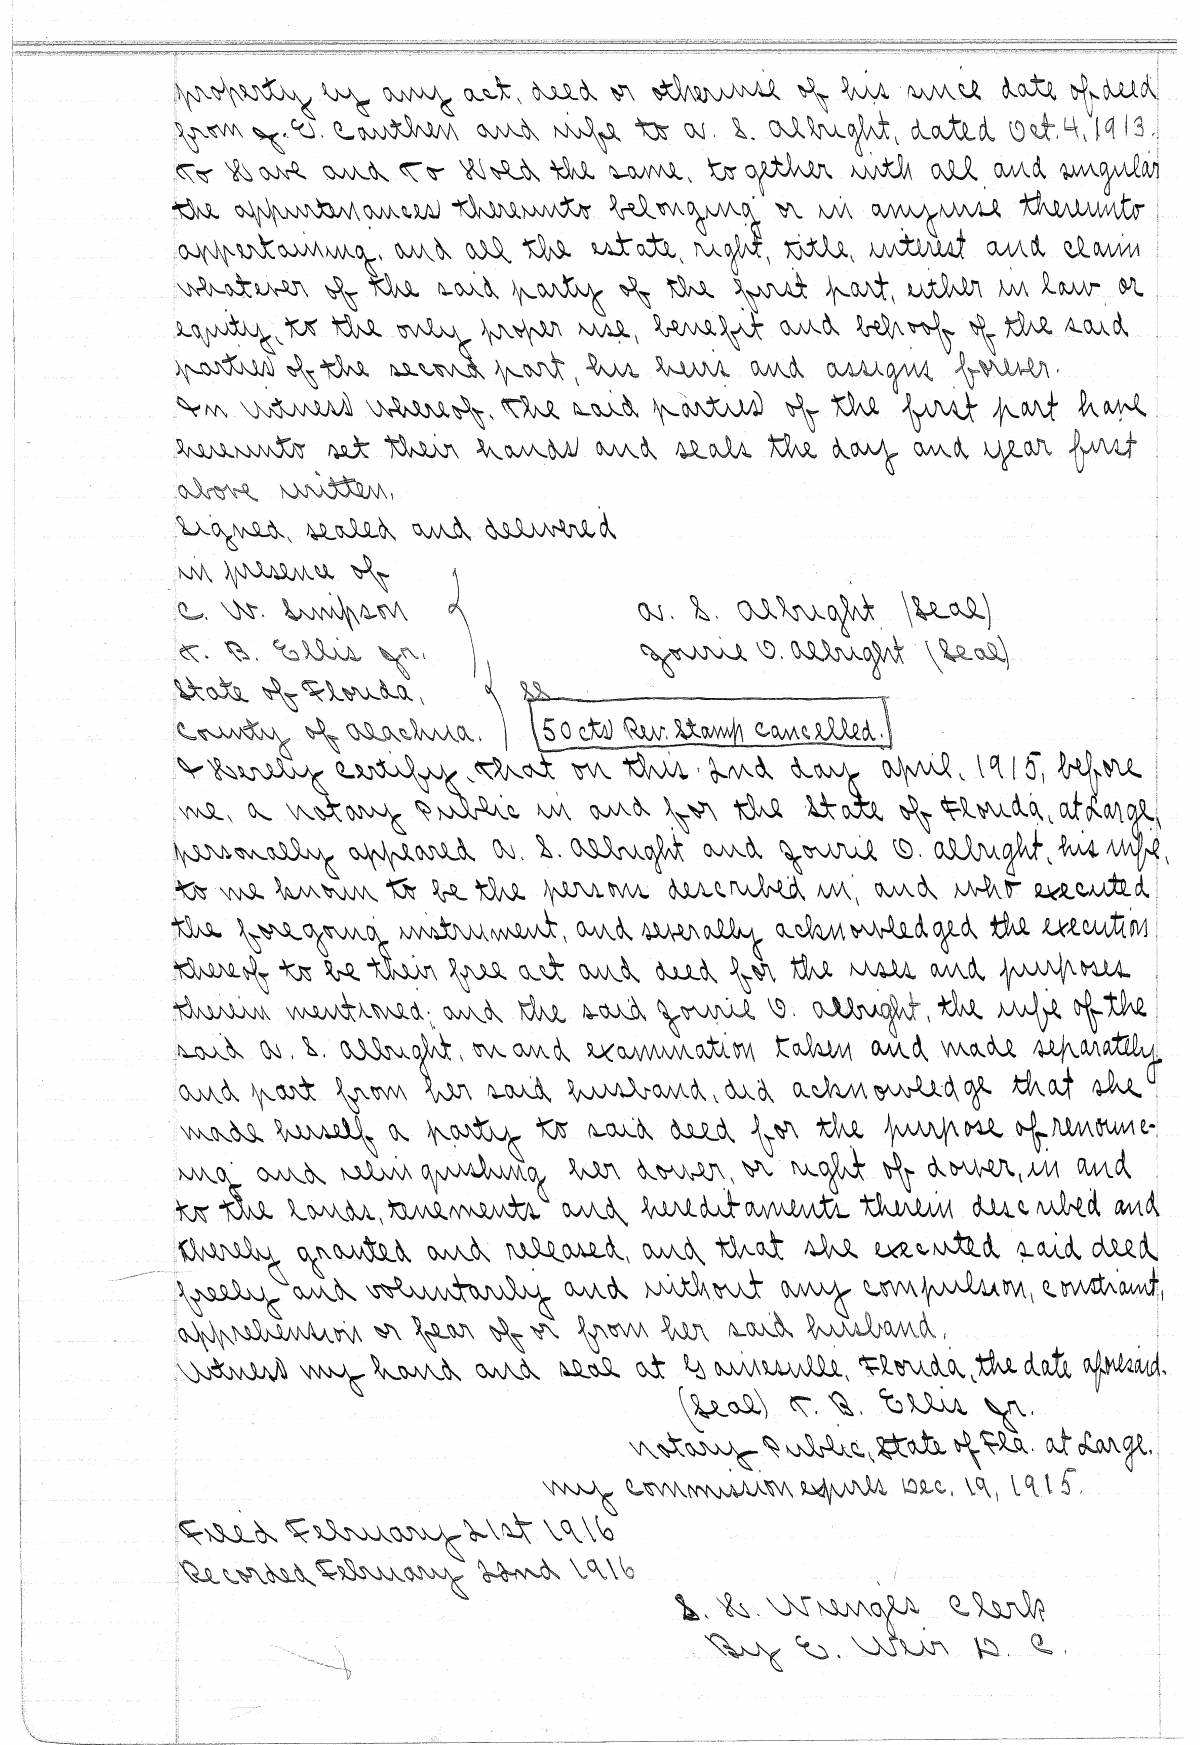 property by any act, deed or otherwise of his since date of deed
from J. E. Cauthen and wife to A. S. Albright, dated Oct. 4, 1913.
To Have and To Hold the same, together with all and singular
the appurtenances thereunto belonging or in anywise thereunto
appertaining, and all the estate, right, title, interest and claim
whatever of the said party of the first part, either in law or
equity, to the only proper use, benefit and behoof of the said
parties of the second part, his heirs and assigns forever.
In Witness Whereof, The said parties of the first part have
hereunto set their hands and seals the day and year first
above written.
Signed, sealed and delivered
in presence of
C. W. Simpson
A. S. Albright (Seal)
T. B. Ellis Jr.
Zourie O. Albright (Seal)
State of Florida,
SS
County of Alachua.
50 cts Rev. Stamp Cancelled.
I Hereby Certify, That on this 2nd day April, 1915, before
me, a Notary Public in and for the State of Florida, at Large,
personally appeared A. S. Albright and Zourie O. Albright, his wife,
to me known to be the persons described in, and who executed
the foregoing instrument, and severally acknowledged the execution
thereof to be their free act and deed for the uses and purposes
therein mentioned; and the said Zourie O. Albright, the wife of the
said A. S. Albright, on and examination taken and made separately
and part from her said husband, did acknowledge that she
made herself a party to said deed for the purpose of renounc-
ing and relinquishing her dower, or right of dower, in and
to the lands, tenements and hereditaments therein described and
thereby granted and released, and that she executed said deed
freely and voluntarily and without any compulsion, constraint,
apprehension or fear of or from her said husband.
Witness my hand and seal at Gainesville, Florida, the date aforesaid.
(Seal) T. B. Ellis Jr.
Notary Public, State of Fla. at Large.
My commission expires Dec. 19, 1915.
Filed February 21st 1916
Recorded February 22nd 1916
S. H. Wienges Clerk
By E. Weir D. C.